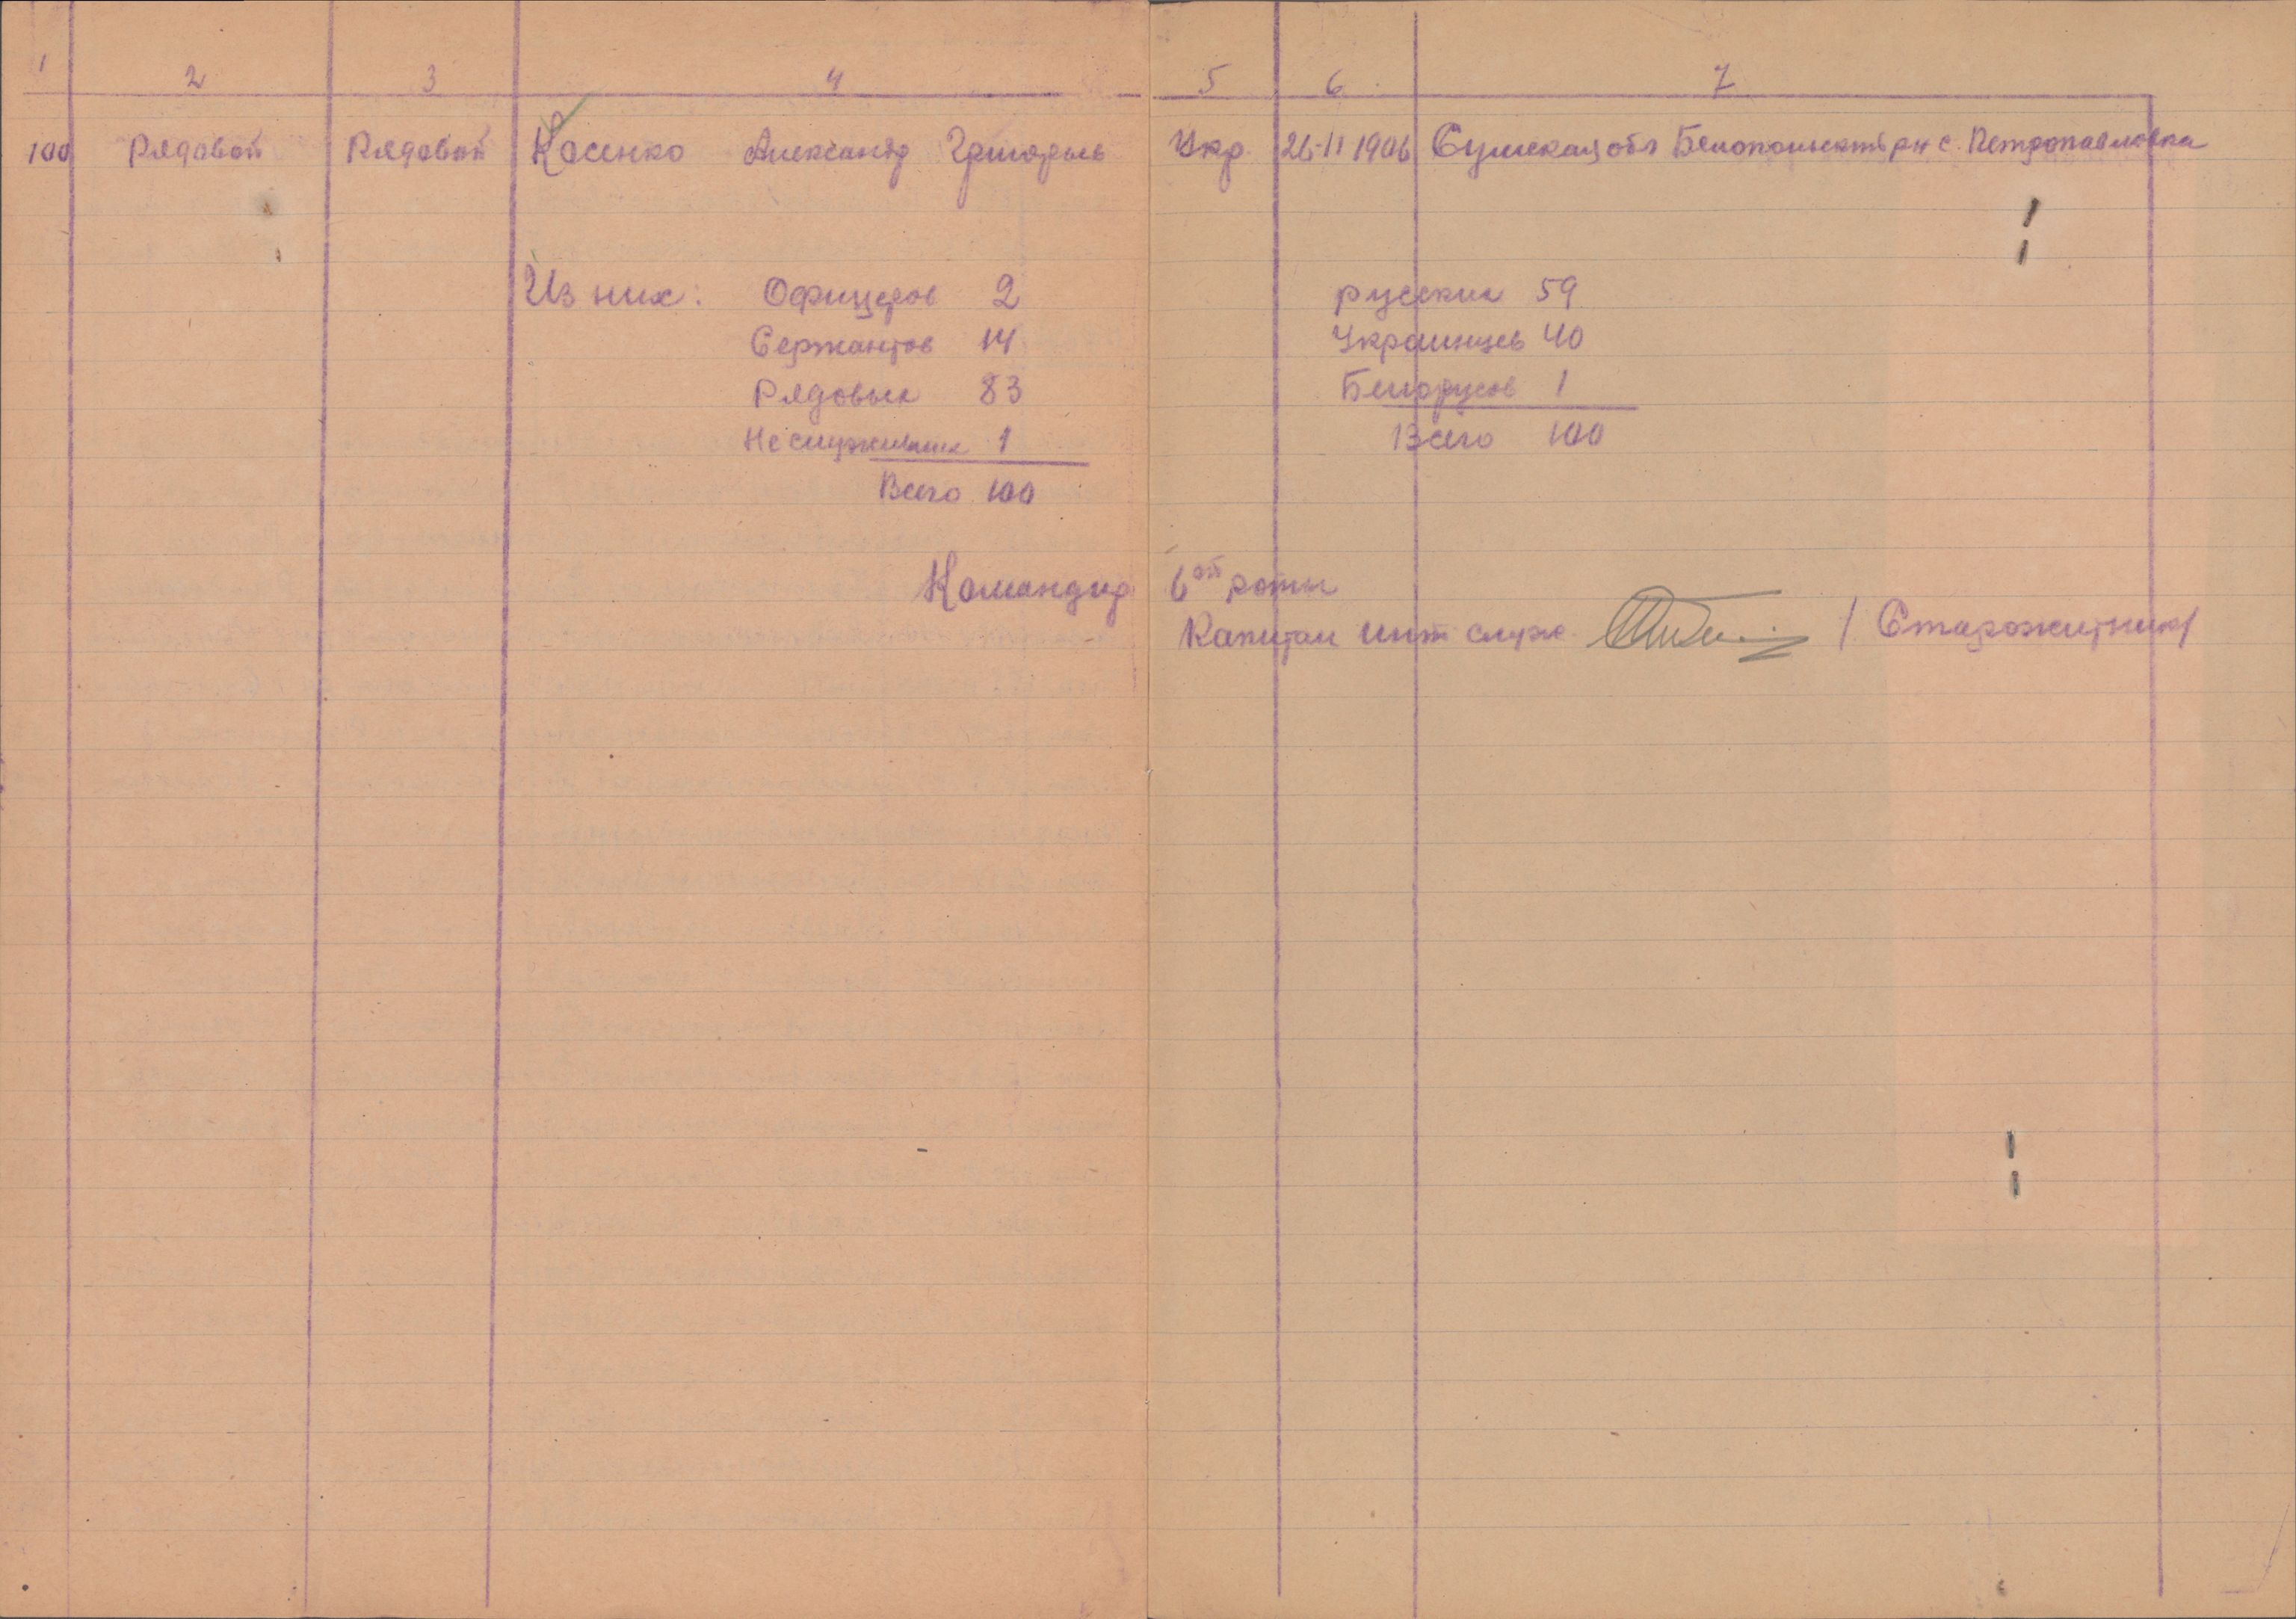 1 2 3 4 5 6 7
100 Рядовой Рядовой Косенко Александр Григорьев Укр 26-11 1906 Сумская обл Белопольский рн с. Петропавловка
Из них: Офицеров 2 русских 59
Сержантов 14 Украинцев 40
Рядовых 83 Белорусов 1
Не служивших 1 Всего 100
Всего 100
Командир 6ой роты
Капитан инт служ / Старожитник/